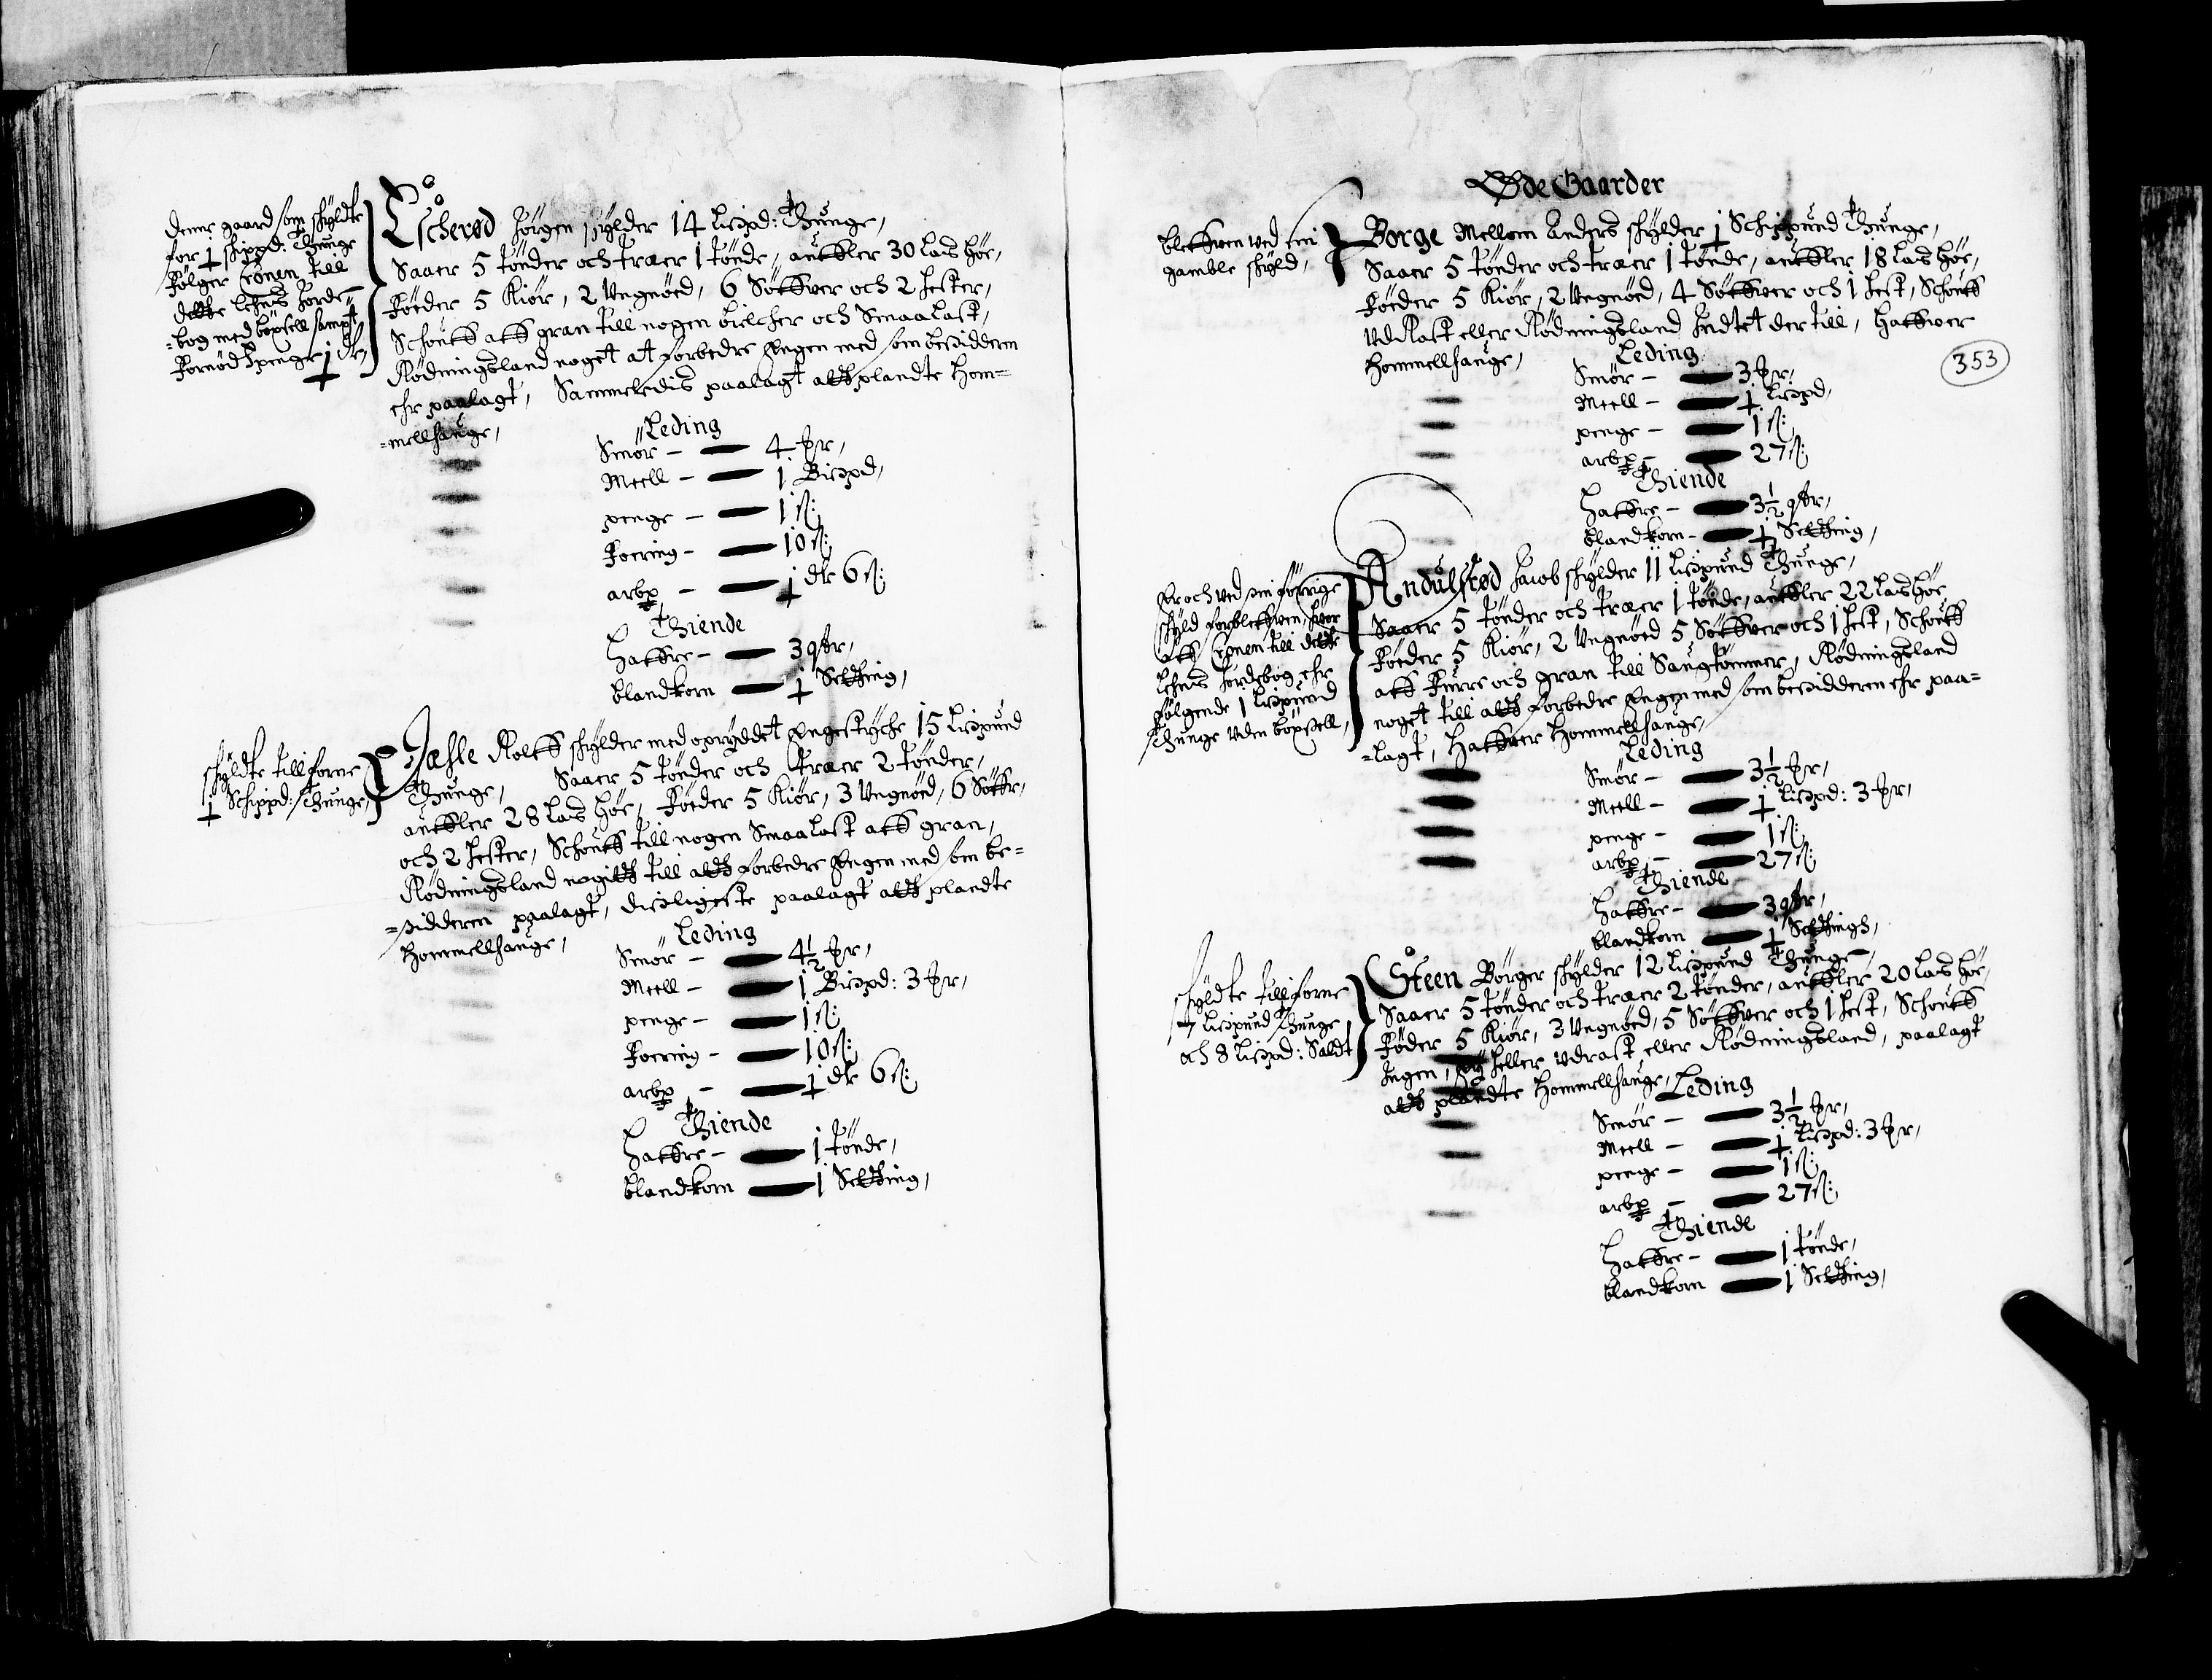 Denne gaard som schyldte
for 1 skippd: Thunge
følger Cronen till
dette Lehns Jorde-
-bog med böxsell sampt
Fornødspenge 1 dr,
Escherød Jørgen schylder 14 Lispd: Thunge,
Saaer 5 tønder och træer 1 tønde, aufler 30 Lass høe,
Føeder 5 Kiør, 2 Ungnøed, 6 Søffuer och 2 Hester,
Schouff aff gran till nogen bielcher och Smaalast,
Rødningsland noget at forbedre Engen med som besidderen
ehr paalagt, Sammeledis paalagt att plandte Hom=
=mellhauge,
Leding
Smør — 4 ꝑr,
Meell — 1 Bispd,
penge — 1 ß:
Foering — 10 ß:
arbp — 1 dr 6 ß:
Thiende
Haffre — 3 qtr,
blandkorn — 1 Setthing,
schyldte till forne
1 Schippd: Thunge,
Jæhle Rolff schylder med opryddet Engestyche 15 Lispund
Thunge, Saaer 5 tønder och træer 2 tønder,
auffler 28 Lass høe, Føeder 5 Kiør, 3 Ungnøed, 6 Søffr,
och 2 Hester, Schouff till nogen Smaalast aff gran,
Rødningsland nogitt till att forbedre Engen med som be=
=sidderen paalagt, disligeste paalagt att plandte
Hommellhauge,
Leding
Smør — 4½ ꝑr,
Meell — 1 Bispd: 3 ꝑr,
penge — 1 ß:
Foering — 10 ß:
arbp — 1 dr 6 ß:
Thiende
Haffre — 1 tønde,
blandkorn — 1 Setthing,
Øde Gaarder
353
bleffuen ved sin
gamble schyld,
Borge Mellom Anders schylder 1 Schippund Thunge,
Saaer 5 tønder och træer 1 tønde, auffler 18 Lass høe,
Føeder 5 Kiør, 2 Ungnøed, 4 Søffuer och 1 Hest, Schouff
Udrast eller Rødningsland Indtet der till, Haffuer
Hommellhauge,
Leding
Smør — 3 ꝑr,
Meell — 1 Lispd,
penge — 1 ß:
arbp — 27 ß:
Thiende
Haffre — 3½ qtr,
blandkorn — 1 Setthing,
Er och ved sin forrige
schyld forbleffuen, hvor
aff Cronen till dette
Lehns Jordebog ehr
følgende 1 Lispund
Thunge uden böxsell,
Andulsrød Jacob schylder 11 Lispund Thunge,
Saaer 5 tønder och træer 1 tønde, auffler 22 Lass høe,
Føeder 5 Kiør, 2 Ungnøed 5 Søffuer och 1 Hest, Schouff
aff Furre och gran till Saugtømmer, Rødningsland
noget till att forbedre Engen med som besidderen ehr paa=
=lagt, Haffuer Hommellhauge,
Leding
Smør — 3½ ꝑr,
Meell — 1 Lispd: 3 ꝑr,
penge — 1 ß:
arbp — 27 ß:
Thiende
Haffre — 3 qtr,
blandkorn — 1 Setthingh,
schyldte till forne
7 Lispund Thunge
och 8 Lispd: Saldt
Steen Børger schylder 12 Lispund Thunge,
Saaer 5 tønder och træer 2 tønder, auffler 20 Lass høe,
Føder 5 Kiør, 3 Ungnøed, 5 Søffuer och 1 Hest, Schouff
Ingen, ey heller udrast eller Rødningsland, paalagt
att plandte Hommellhauge,
Leding
Smør — 3½ ꝑr,
Meell — 1 Lispd: 3 ꝑr,
penge — 1 ß:
arbp — 27 ß:
Thiende
Haffre — 1 tønde,
blandkorn — 1 Setthing,